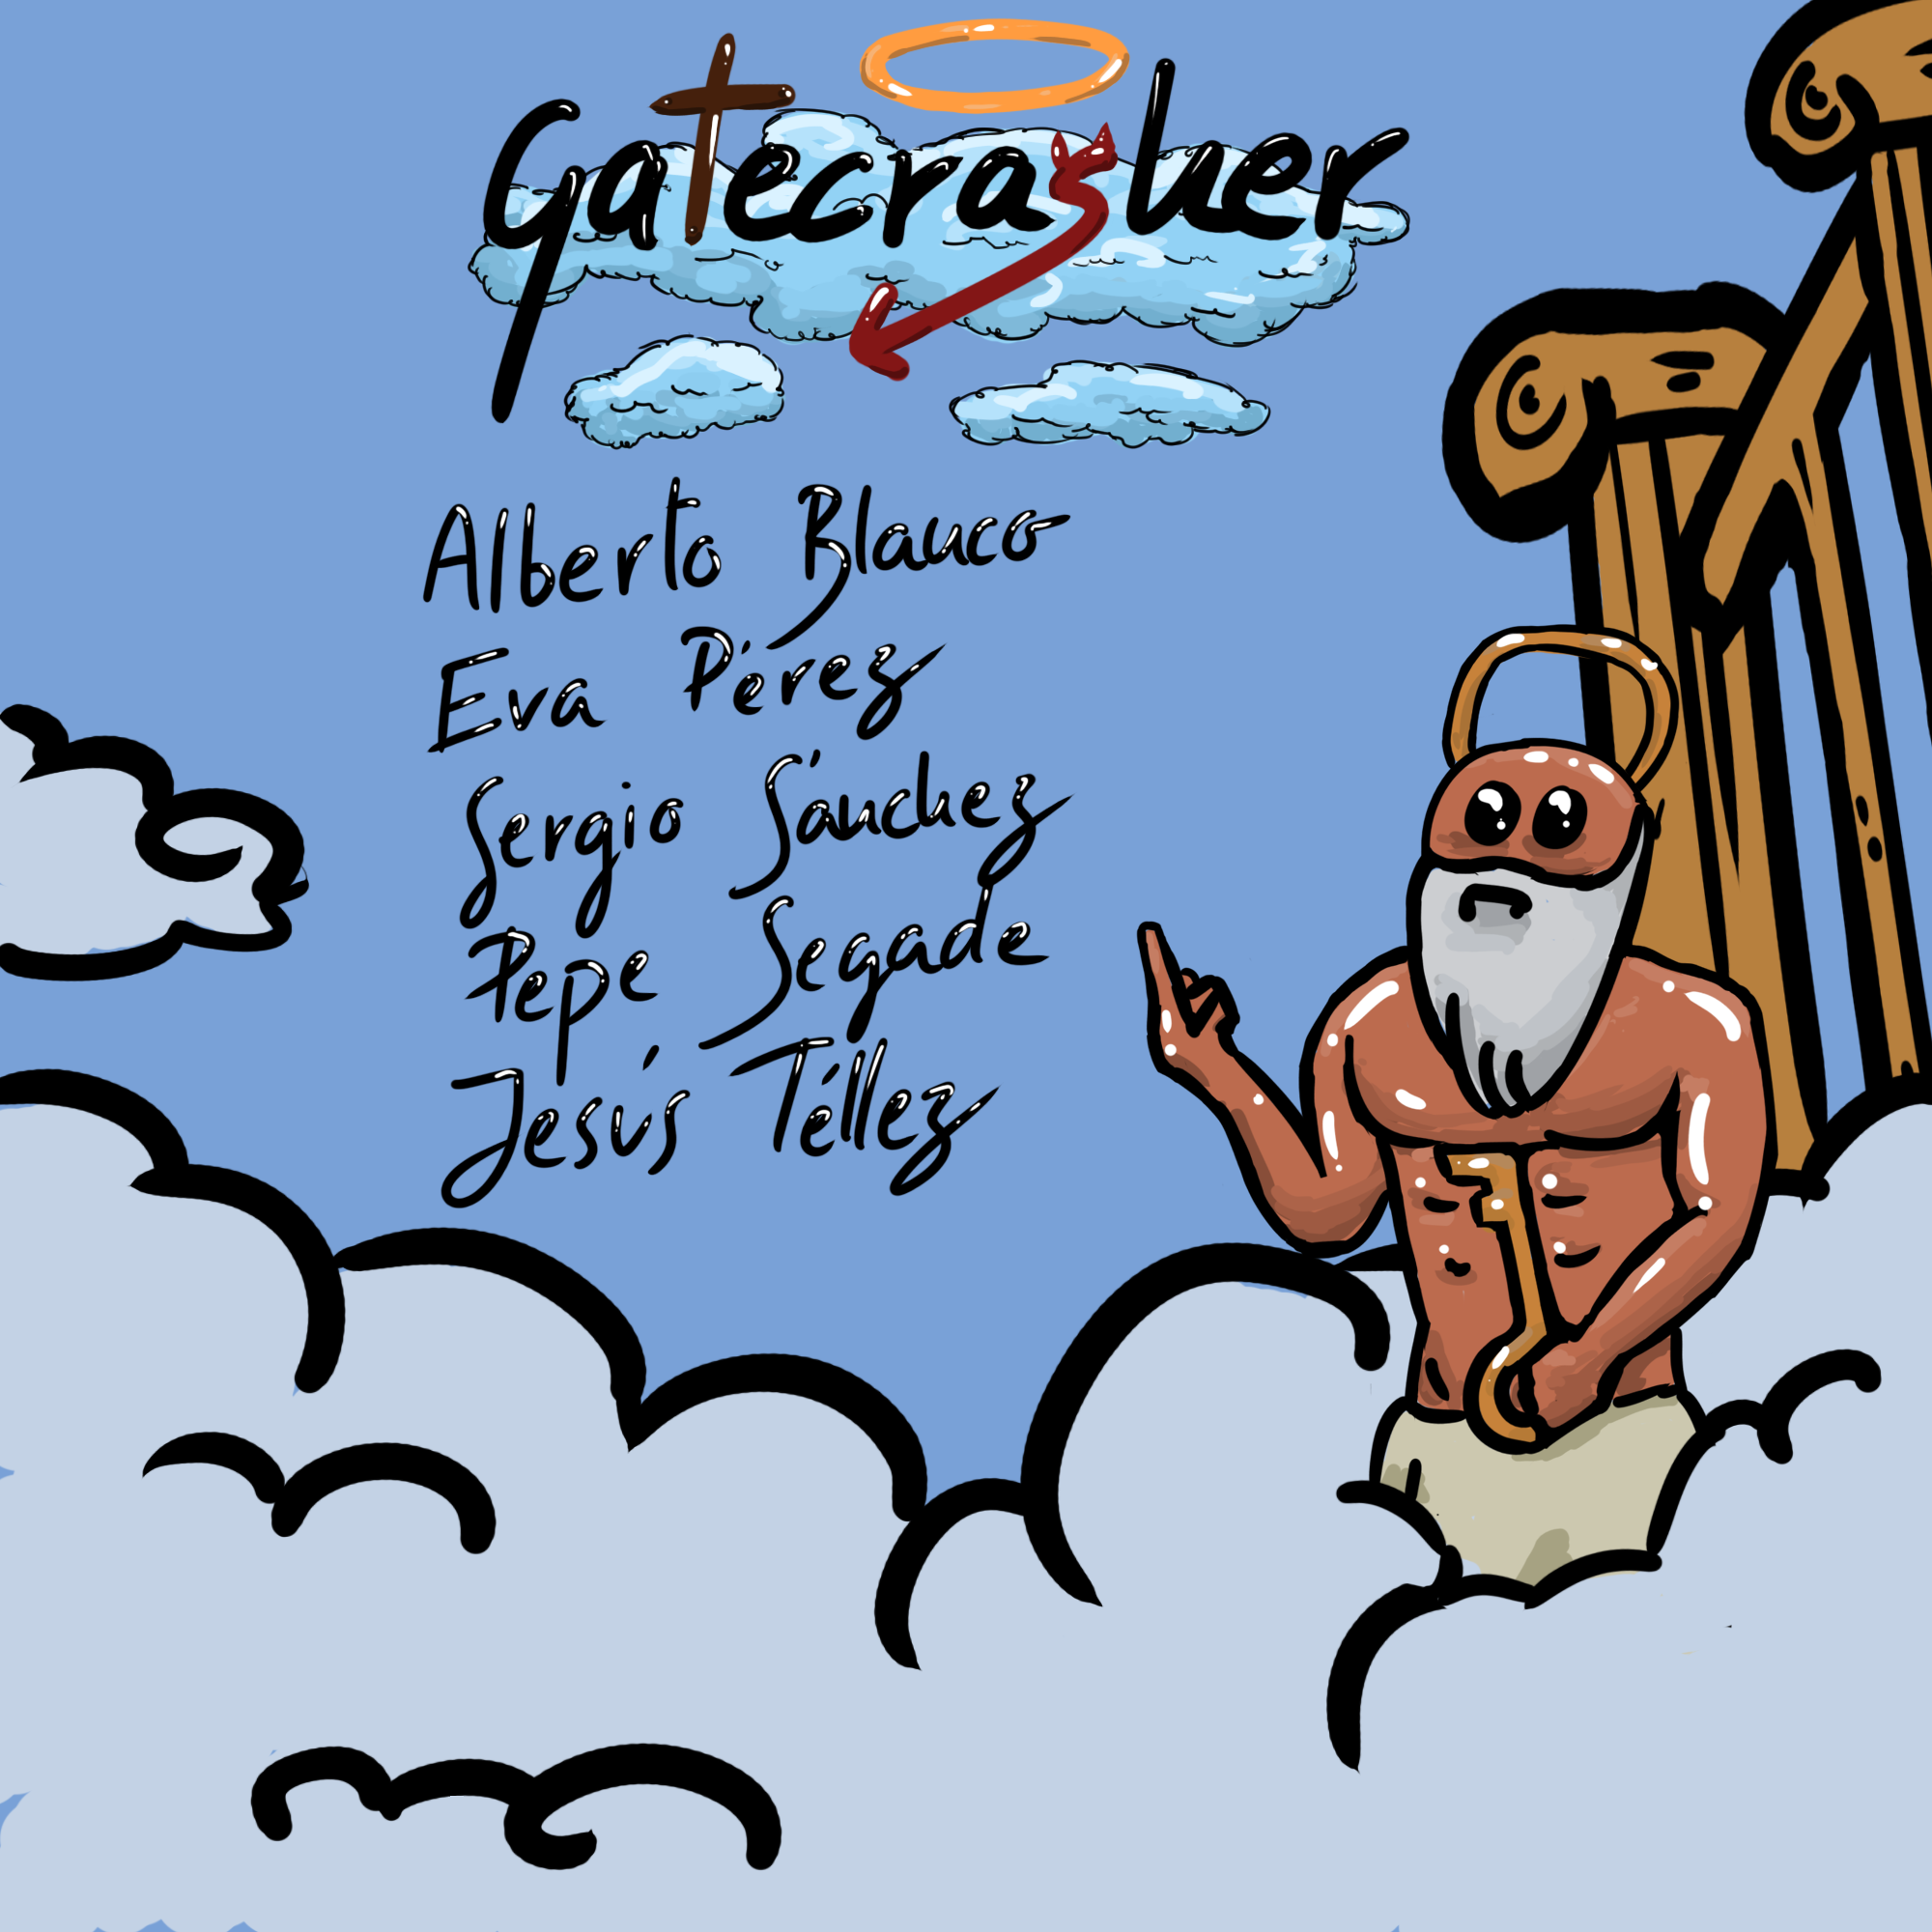 Gatecrasher
Alberto Blanco
Eva Pérez
Sergio Sánchez
Pepe Segade
Jesús Téllez